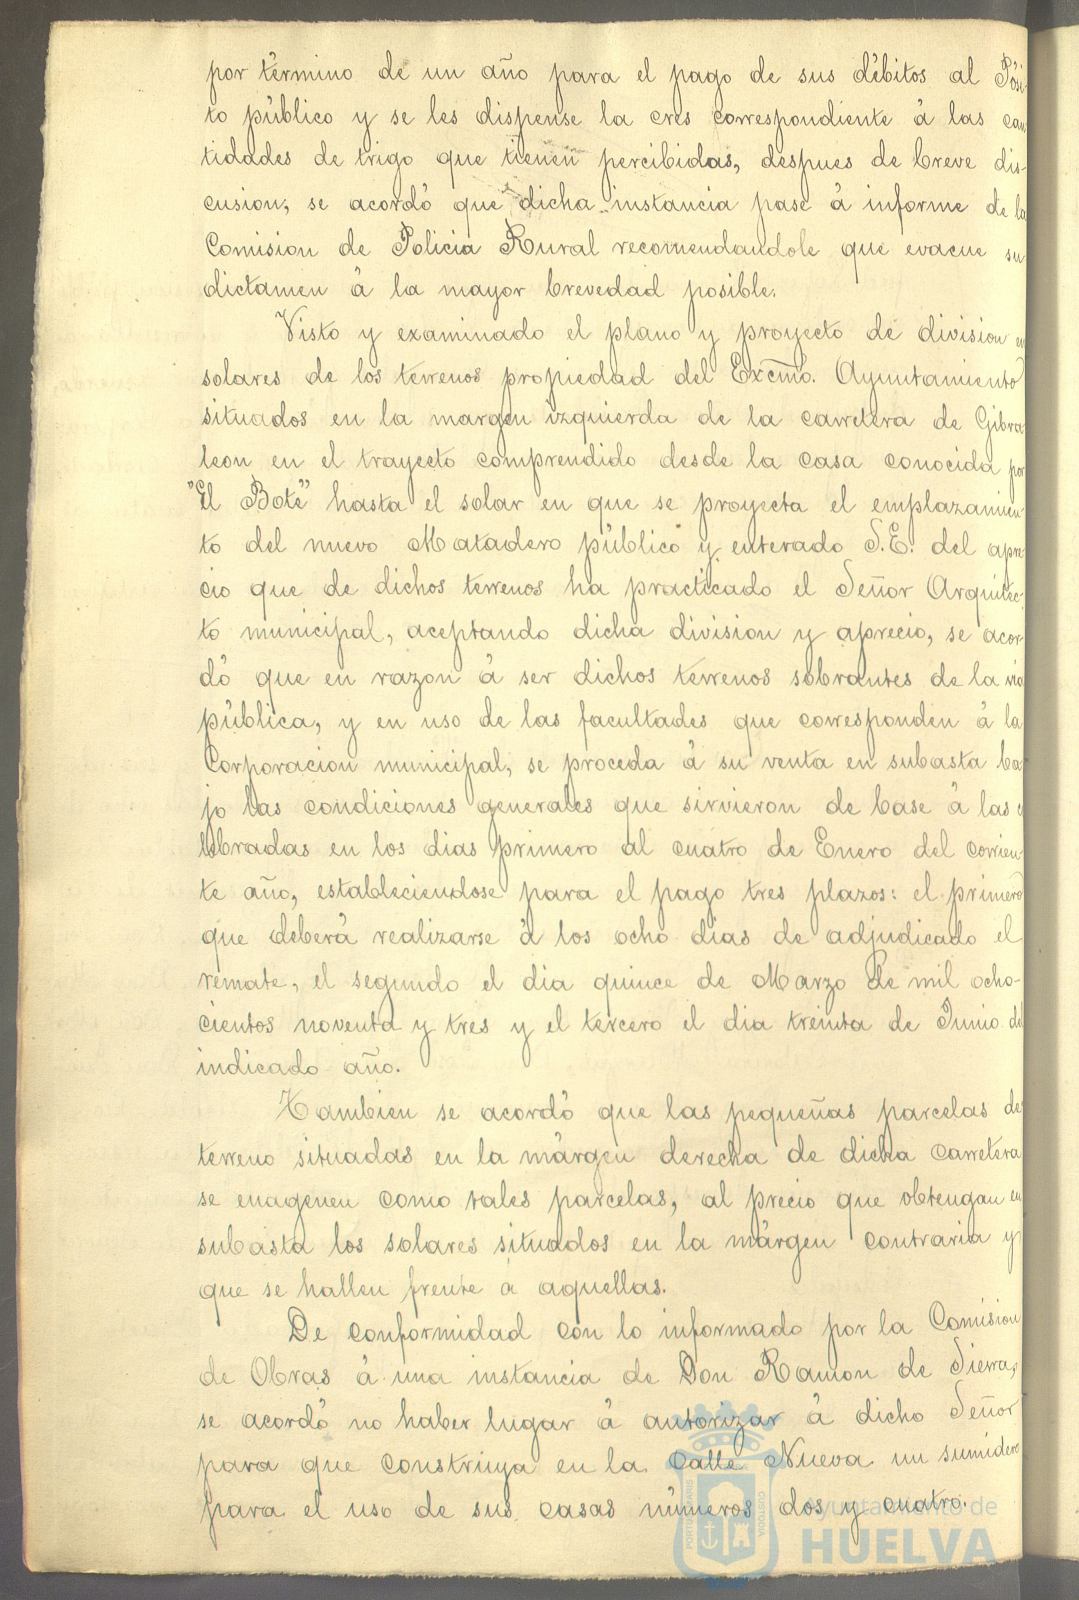 por término de un año para el pago de sus débitos al Pósi-
to público y se les dispense la cres correspondiente á las can
tidades de trigo que tienen percibidas, despues de breve dis-
cusion, se acordó que dicha instancia pase á informe de la
Comision de Policia Rural recomendandole que evacue su
dictamen á la mayor brevedad posible.
Visto y examinado el plano y proyecto de division en
solares de los terrenos propiedad del Excmo. Ayuntamiento
situados en la margen izquierda de la carretera de Gibra
leon en el trayecto comprendido desde la casa conocida por
"El Bote" hasta el solar en que se proyecta el emplazamien-
to del nuevo Matadero público y enterado S.E. del apre
cio que de dichos terrenos ha practicado el Señor Arquitec-
to municipal, aceptando dicha division y aprecio, se acor
dó que en razon á ser dichos terrenos sobrantes de la via
pública, y en uso de las facultades que corresponden á la
Corporacion municipal, se proceda á su venta en subasta ba-
jo las condiciones generales que sirvieron de base á las ce
lebradas en los dias primero al cuatro de Enero del corrien-
te año, estableciendose para el pago tres plazos: el primero
que deberá realizarse á los ocho dias de adjudicado el
remate, el segundo el dia quince de Marzo de mil ocho-
cientos noventa y tres y el tercero el dia treinta de Junio del
indicado año.
Tambien se acordó que las pequeñas parcelas de
terreno situadas en la márgen derecha de dicha carretera
se enagenen como tales parcelas, al precio que obtengan en
subasta los solares situados en la márgen contraria y
que se hallen frente á aquellas.
De conformidad con lo informado por la Comision
de Obras á una instancia de Don Ramon de Sierra,
se acordó no haber lugar á autorizar á dicho Señor
para que construya en la Calle Nueva un sumidero
para el uso de sus casas números dos y cuatro.
Ayuntamiento de
HUELVA
PORTUS MARIS
CUSTODIA